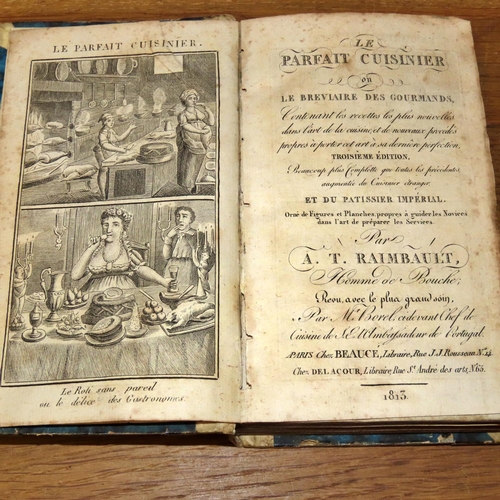 LE PARFAIT CUISINIER.
Le Roti sans pareil
ou le délice des Gastronomes.
LE
PARFAIT CUISINIER
ou
LE BREVIAIRE DES GOURMANDS,
Contenant les recettes les plus nouvelles
dans l'art de la cuisine, et de nouveaux procédés
propres à porter cet art à sa dernière perfection,
TROISIEME ÉDITION,
Beaucoup plus Complette que toutes les précédentes
augmentée du Cuisinier étranger
ET DU PATISSIER IMPÉRIAL.
Orné de Figures et Planches, propres à guider les Novices
dans l'art de préparer les Services.
Par
A. T. RAIMBAULT,
Homme de Bouche;
Revu, avec le plus grand soin,
Par Mr. Borel, ci devant Chef de
Cuisine de S.E. l'Ambassadeur de Portugal.
PARIS Chez BEAUCÉ, Libraire, Rue J.J. Rousseau No. 14.
Chez DELACOUR, Libraire, Rue St. André des arts, No.
1813.